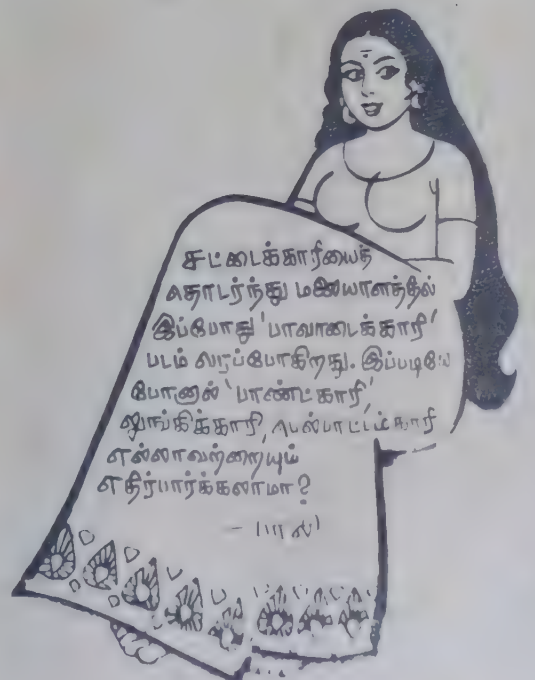 சட்டைக்காரியைத்
தொடர்ந்து மலையாளத்தில்
இப்போது 'பாவாடைக்காரி'
படம் வரப்போகிறது. இப்படியே
போனால் 'பாண்ட்காரி,
லுங்கிக்காரி, பெல்பாட்டம்காரி
எல்லாவற்றையும்
எதிர்பார்க்கலாமா?
- பாலி